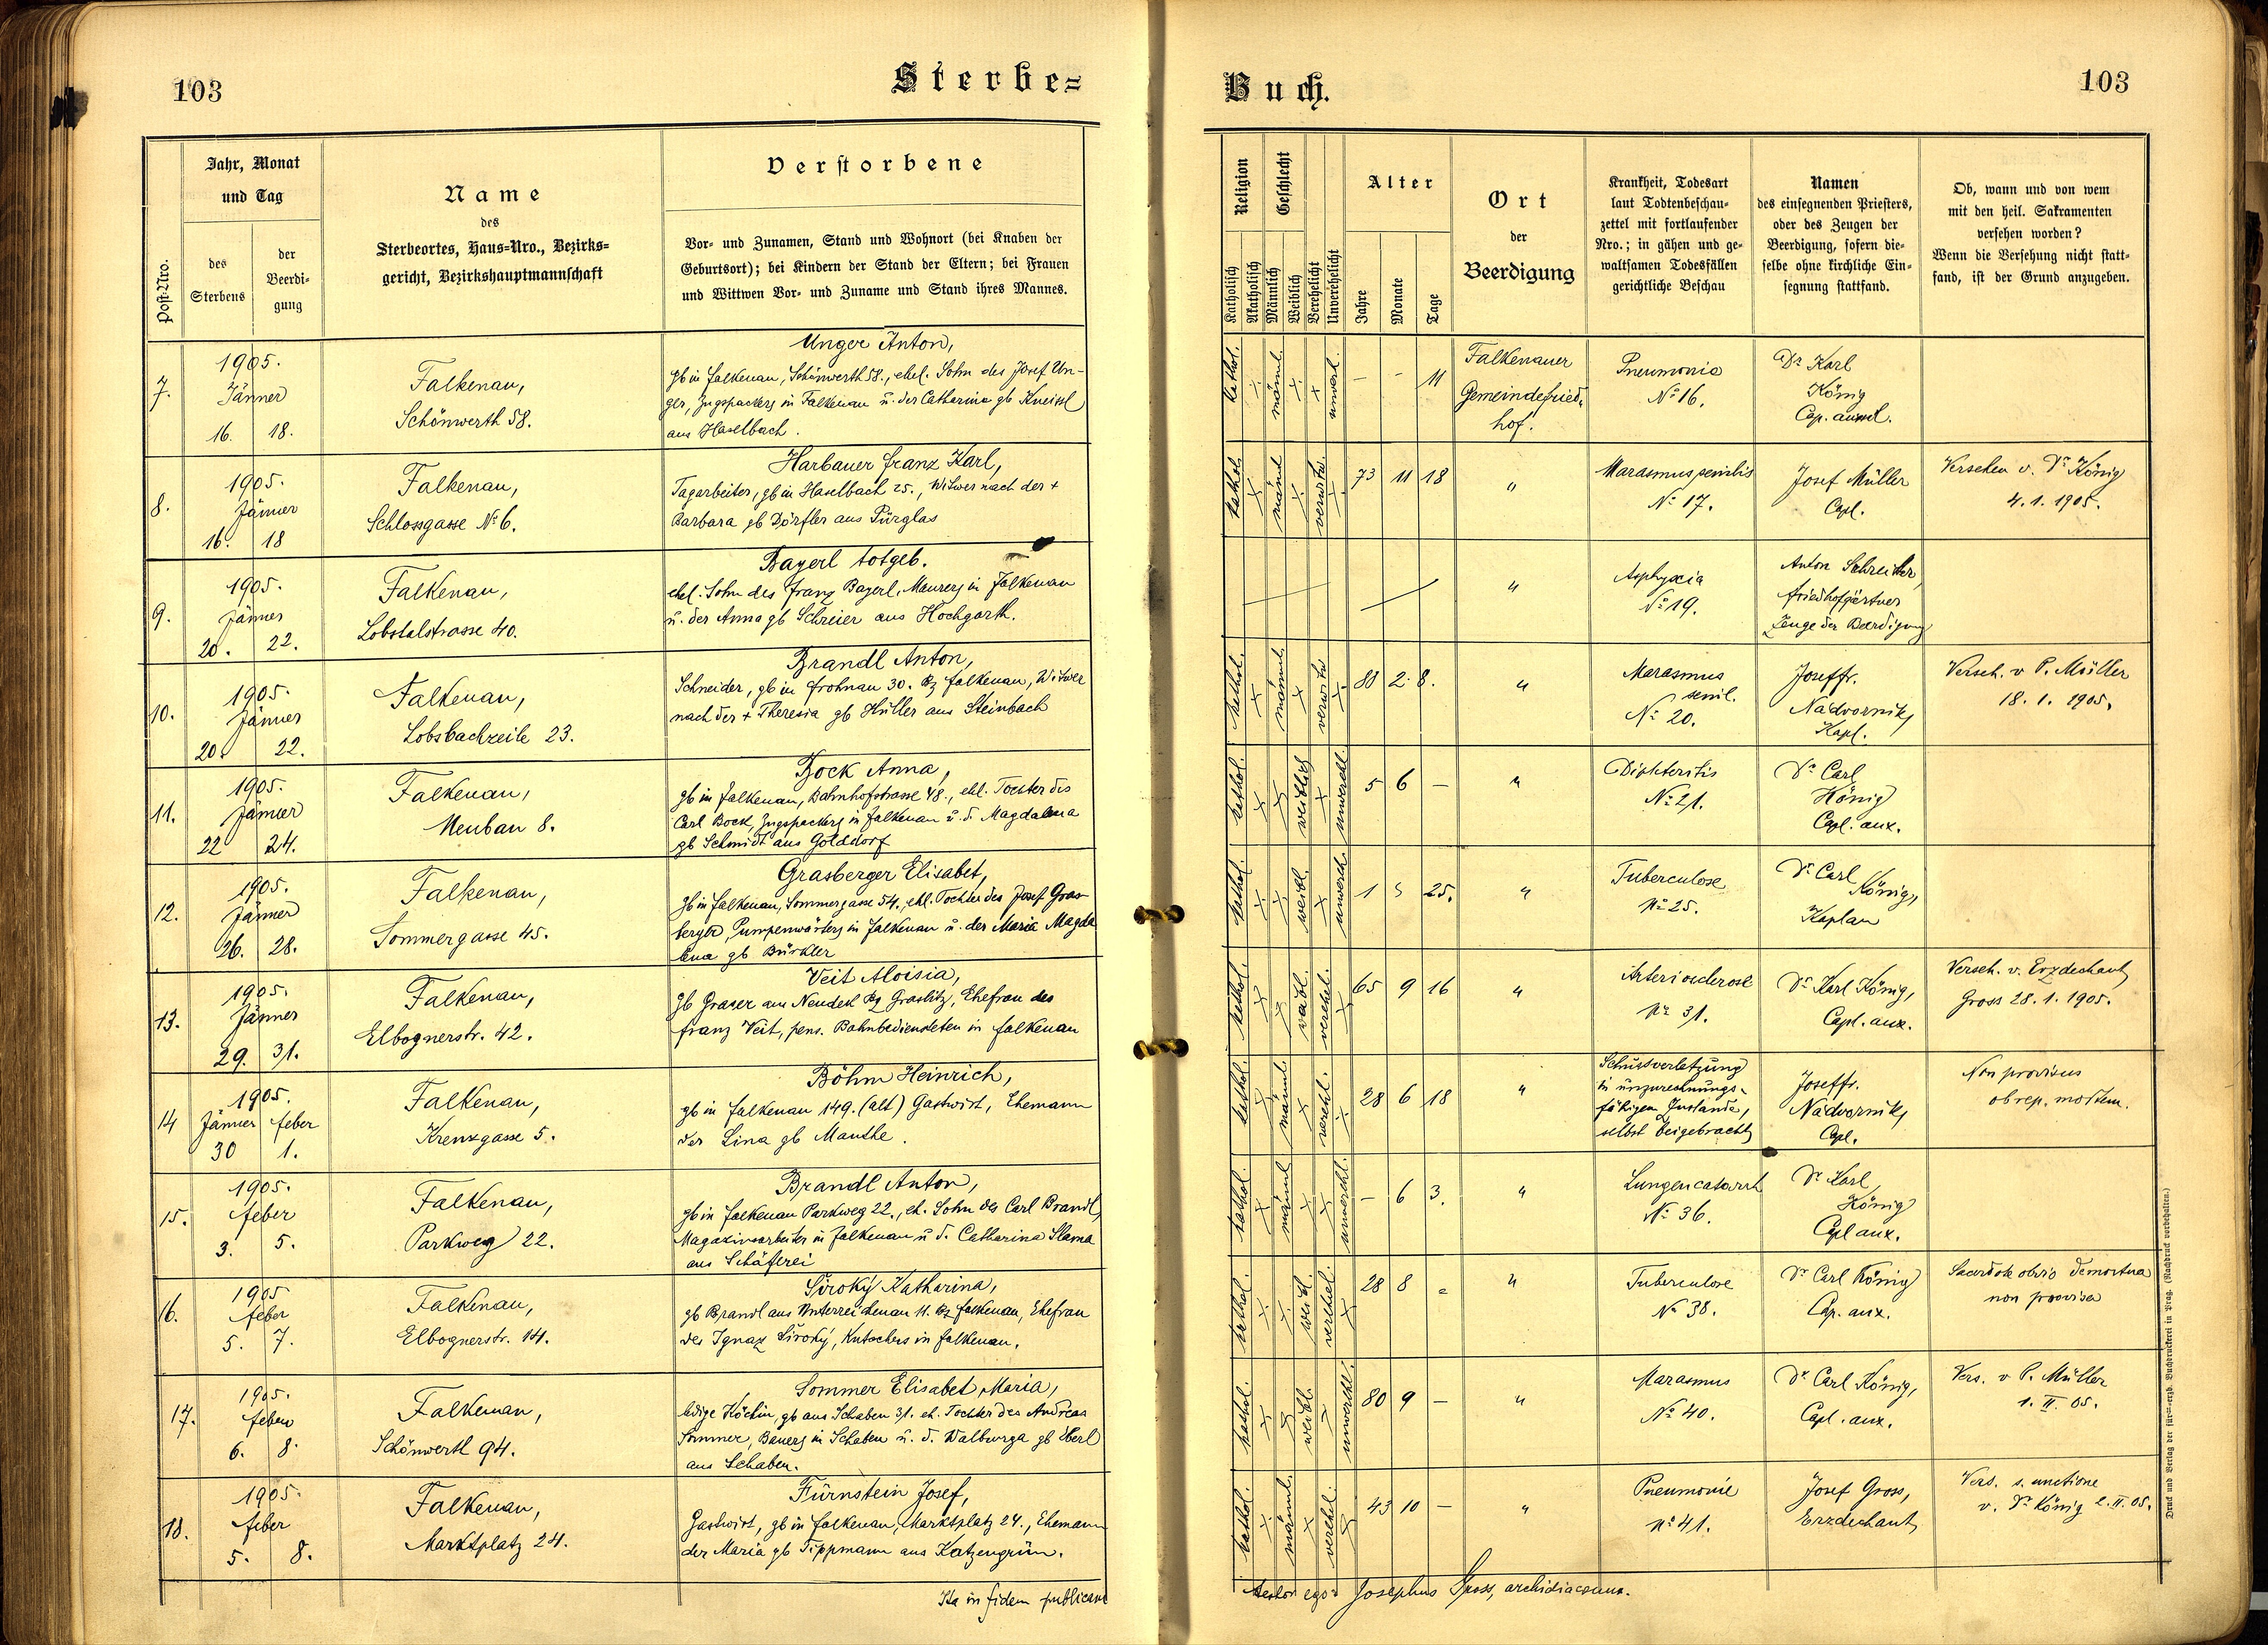 103
Sterbe=
Buch.
103
Jahr, Monat
und Tag
Post-Nro.
des
Sterbens
der
Beerdi-
gung
Name
des
Sterbeortes, Haus=Nro., Bezirks=
gericht, Bezirkshauptmannschaft
Verstorbene
Vor- und Zunamen, Stand und Wohnort (bei Knaben der
Geburtsort); bei Kindern der Stand der Eltern; bei Frauen
und Wittwen Vor- und Zuname und Stand ihres Mannes.
Religion
Geschlecht
Katholisch
Akatholisch
Männlich
Weiblich
Verehelicht
Unverehelicht
Alter
Jahre
Monate
Tage
Ort
der
Beerdigung
Krankheit, Todesart
laut Todtenbeschau-
zettel mit fortlaufender
Nro.; in gähen und ge-
waltsamen Todesfällen
gerichtliche Beschau
Namen
des einsegnenden Priesters,
oder des Zeugen der
Beerdigung, sofern die-
selbe ohne kirchliche Ein-
segnung stattfand.
Ob, wann und von wem
mit den heil. Sakramenten
versehen worden?
Wenn die Versehung nicht statt-
fand, ist der Grund anzugeben.
7.
1905.
Jänner
16. 18.
Falkenau,
Schönwerth 58.
Unger Anton,
gb in Falkenau, Schönwerth 58., ehel. Sohn des Josef Un-
ger, Zugspackers in Falkenau u. der Catharina gb Kneissl
aus Haselbach.
kathol. männl. unverl.
- - 11
Falkenauer
Gemeindefried-
hof.
Pneumonia
No 16.
Dr Karl
König
Cap. auxil.
8.
1905.
Jänner
16. 18
Falkenau,
Schlossgasse No 6.
Harbauer Franz Karl,
Tagarbeiter, gb in Haselbach 25., Witwer nach der +
Barbara gb Dörfler aus Pürglas
kathol. männl verwitw.
73 11 18
"
Marasmus senilis
No 17.
Josef Müller
Capl.
Versehen v. Dr König
4. 1. 1905.
9.
1905.
Jänner
20. 22.
Falkenau,
Lobstalstrasse 40.
Bayerl totgeb.
ehel. Sohn des Franz Bayerl, Maurers in Falkenau
u. der Anna gb Schreier aus Hochgarth.
"
Asphyxia
No 19.
Anton Schreiter
Friedhofgärtner
Zeuge der Beerdigung
10.
1905.
Jänner
20. 22.
Falkenau,
Lobsbachzeile 23.
Brandl Anton,
Schneider, gb in Frohnau 30. Bz Falkenau, Witwer
nach der + Theresia gb Hüller aus Steinbach
kathol. männl. verwitw
80 2. 8.
"
Marasmus
senil.
No 20.
Joseffr.
Nádvornik,
Kapl.
Verseh. v P. Müller
18. 1. 1905.
11.
1905.
Jänner
22 24.
Falkenau,
Neubau 8.
Bock Anna,
gb in Falkenau, Bahnhofstrasse 48., ehl. Tochter des
Carl Bock, Zugspackers in Falkenau u. d. Magdalena
gb Schmidt aus Golddorf
kathol. weiblich unverehl.
5 6 -
"
Diphteritis
No 21.
Dr Carl
König
Capl. aux.
12.
1905.
Jänner
26. 28.
Falkenau,
Sommergasse 45.
Grasberger Elisabet,
gb in Falkenau, Sommergasse 54., ehl. Tochter des Josef Gras-
berger, Pumpenwärters in Falkenau u. der Maria Magda
lena gb Bürkler
kathol. weibl. unverehl.
1 5 25.
"
Tuberculose
No 25.
Dr Carl
König,
Kaplan
13.
1905.
Jänner
29. 31.
Falkenau,
Elbognerstr. 42.
Veit Aloisia,
gb Graser aus Neudek Bz Graslitz, Ehefrau des
Franz Veit, pens. Bahnbediensteten in Falkenau
kathol. weibl. verehel.
65 9 16
"
Arteriosclerose
No 31.
Dr Karl König,
Capl. aux.
Verseh. v. Erzdechant
Gross 28. 1. 1905.
14
1905.
Jänner feber
30 1.
Falkenau,
Kreuzgasse 5.
Böhm Heinrich,
gb in Falkenau 149. (alt) Gastwirt, Ehemann
der Lina gb Mauthe.
kathol. männl. verehl.
28 6 18
"
Schussverletzung
in unzurechnungs-
fähigem Zustande,
selbst beigebracht
Joseffr.
Nádvornik,
Capl.
Non provisus
ob rep. mortem.
15.
1905.
feber
3. 5.
Falkenau,
Parkweg 22.
Brandl Anton,
gb in Falkenau Parkweg 22., eh. Sohn des Carl Brandl,
Magazinsarbeiters in Falkenau u d. Catharina Slama
aus Schäferei
kathol. männl unverehl.
- 6 3.
"
Lungencatarrh
No 36.
Dr Karl
König
Capl aux.
16.
1905
feber
5. 7.
Falkenau,
Elbognerstr. 14.
Široký Katharina,
gb Brandl aus Unterreichenau 11. Bz Falkenau, Ehefrau
des Ignaz Široký, Kutschers in Falkenau.
kathol. weibl. verehel.
28 8 -
"
Tuberculose
No 38.
Dr Carl König
Cap. aux.
Sacerdote obvio demortua
non provisa
17.
1905.
feber
6. 8.
Falkenau,
Schönwerth 94.
Sommer Elisabet Maria,
ledige Köchin, gb aus Schaben 31. eh. Tochter des Andreas
Sommer, Bauers in Schaben u. d. Walburga gb Eberl
aus Schaben.
kathol. weibl. unverehl.
80 9 -
"
Marasmus
No 40.
Dr Carl König,
Capl. aux.
Vers. v P. Müller
1. II. 05.
18.
1905.
feber
5. 8.
Falkenau,
Marktplatz 24.
Fürnstein Josef,
Gastwirt, gb in Falkenau, Marktplatz 24., Ehemann
der Maria gb Tippmann aus Katzengrün.
kathol. männl. verehl.
43 10 -
"
Pneumonie
No 41.
Josef Gross,
Erzdechant
Vers. s. unctione
v. Dr König 2. II. 05.
Ita in fidem publicam
testor ego: Josephus Gross, archidiaconus.
Druck und Verlag der fürst=erzb. Buchdruckerei in Prag. (Nachdruck vorbehalten.)